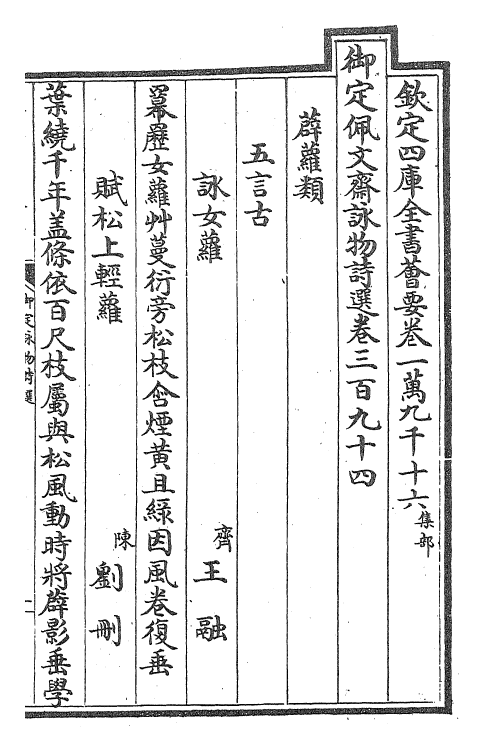 欽定四庫全書薈要卷一萬九千十六集部
御定佩文齋詠物詩選卷三百九十四
薜蘿類
五言古
詠女蘿 齊王融
羃䍥女蘿艸蔓衍旁松枝含煙黄且緑因風卷復垂
賦松上輕蘿 陳劉刪
葉繞千年盖條依百尺枝屬與松風動時將薜影垂學
御定詠物詩選